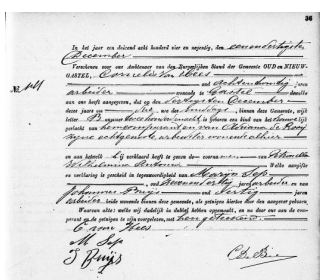 36
In het jaar een duizend acht honderd vier en negentig, den een en dertigsten
December verscheen voor ons Ambtenaar van den Burgerlijken Stand der Gemeente OUD en NIEUW-
GASTEL, Cornelis van Hees
oud achtentwintig jaren
No 141
arbeider wonende te Gastel dewelke
aan ons heeft aangegeven, dat op den dertigsten December
dezes jaars, des middags binnen deze Gemeente, wijk
letter B is geboren een kind van het vrouwelijk
geslacht van hem comparant en van Adriana de Rooij
zijne echtgenoote arbeidster wonende alhier
en aan hetwelk hij verklaard heeft te geven de voornamen Petronella
Wilhelmina Antonia. Welke aangifte
en verklaring is geschied in tegenwoordigheid van Marijn Sep
oud jaren arbeider en van
Johannes Buijs oud veertig jaren
arbeider beide wonende binnen deze gemeente, als getuigen hiertoe door den aangever gekozen.
Waarvan akte: welke wij dadelijk in dubbel hebben opgemaakt, en na door ons aan de com-
parant en de getuigen te zijn voorgelezen, met hen geteekend.
C van Hees
M Sep
J Buijs